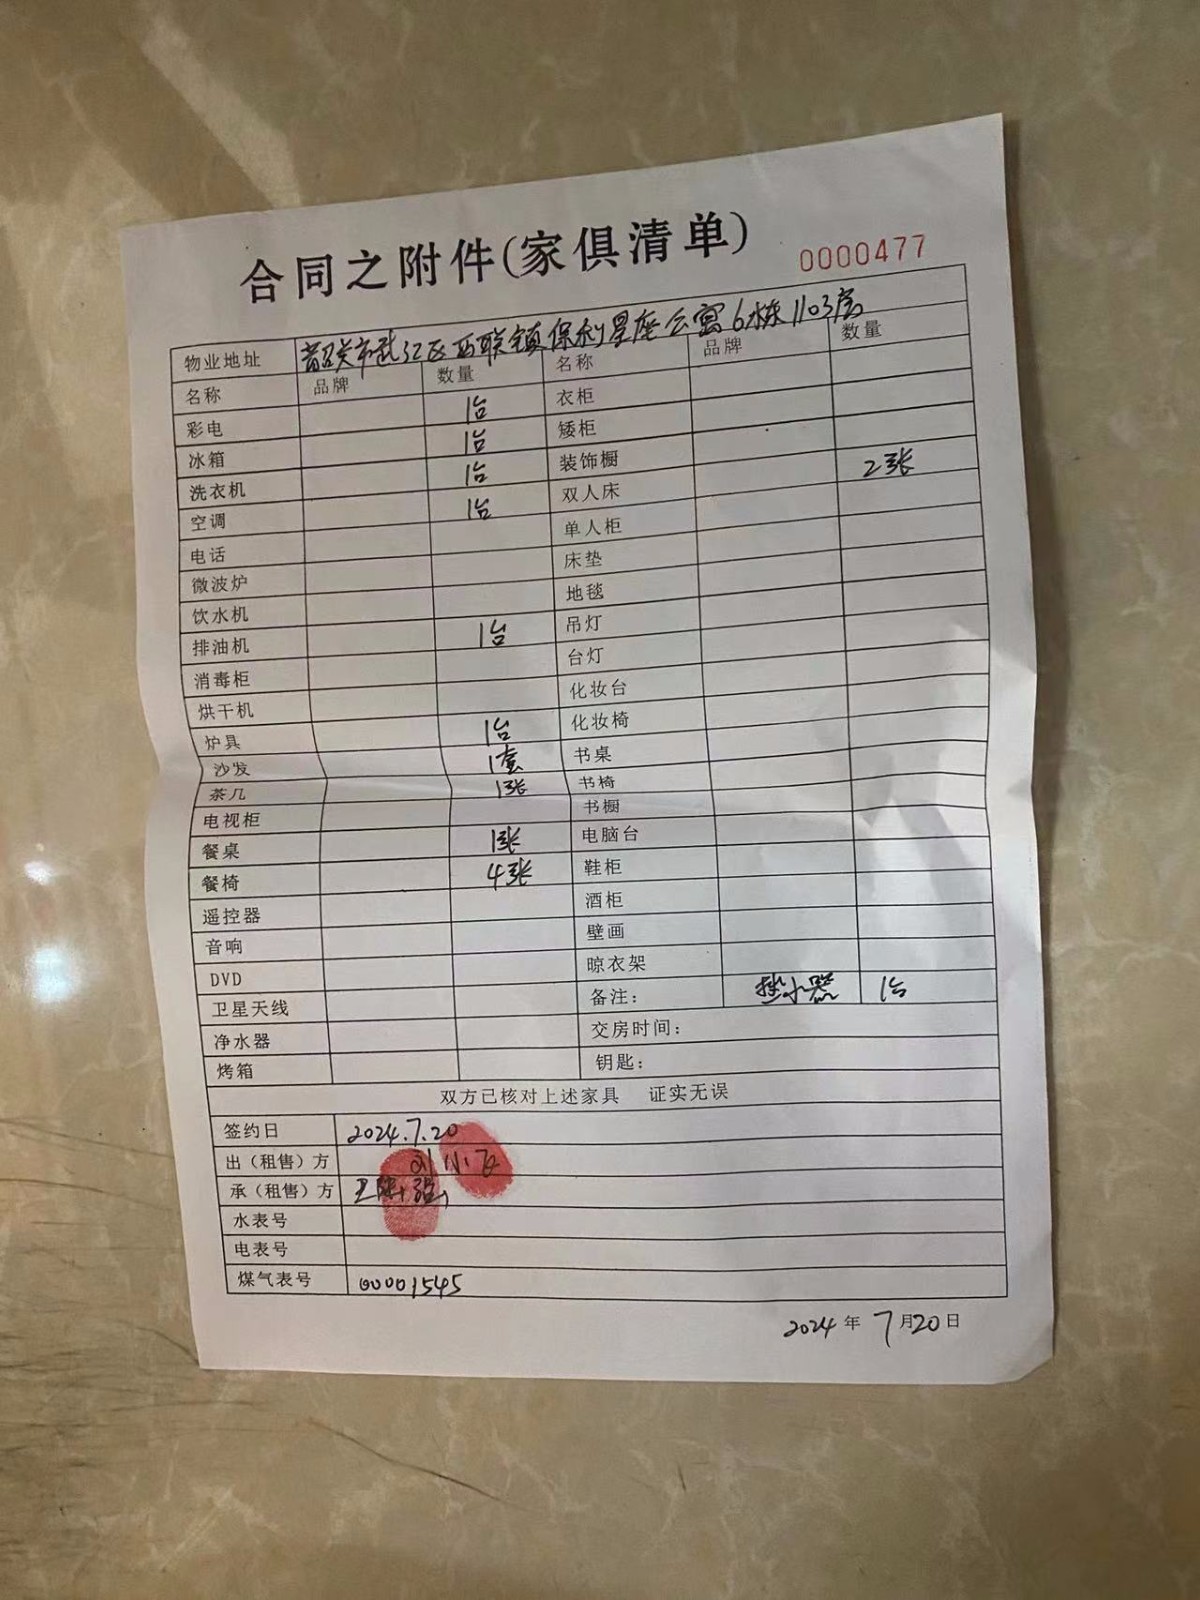 合同之附件(家俱清单)
0000477
物业地址 韶关市武江区西联镇保利星座公寓6栋1103房
名称 品牌 数量 名称 品牌 数量
彩电 1台 衣柜
冰箱 1台 矮柜
洗衣机 1台 装饰橱
空调 1台 双人床 2张
电话 单人柜
微波炉 床垫
饮水机 地毯
排油机 1台 吊灯
消毒柜 台灯
烘干机 化妆台
炉具 1台 化妆椅
沙发 1套 书桌
茶几 1张 书椅
电视柜 书橱
餐桌 1张 电脑台
餐椅 4张 鞋柜
遥控器 酒柜
音响 壁画
DVD 晾衣架
卫星天线 备注: 热水器 1台
净水器 交房时间:
烤箱 钥匙:
双方已核对上述家具 证实无误
签约日 2024.7.20
出(租售)方 刘小飞
承(租售)方
水表号
电表号
煤气表号 00001545
2024 年 7 月 20 日